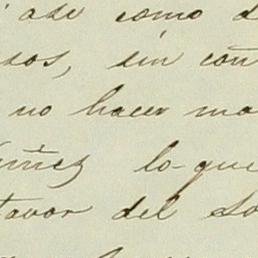 asi como d
sos, sin con
no hacer ma
uñez lo que
favor del So